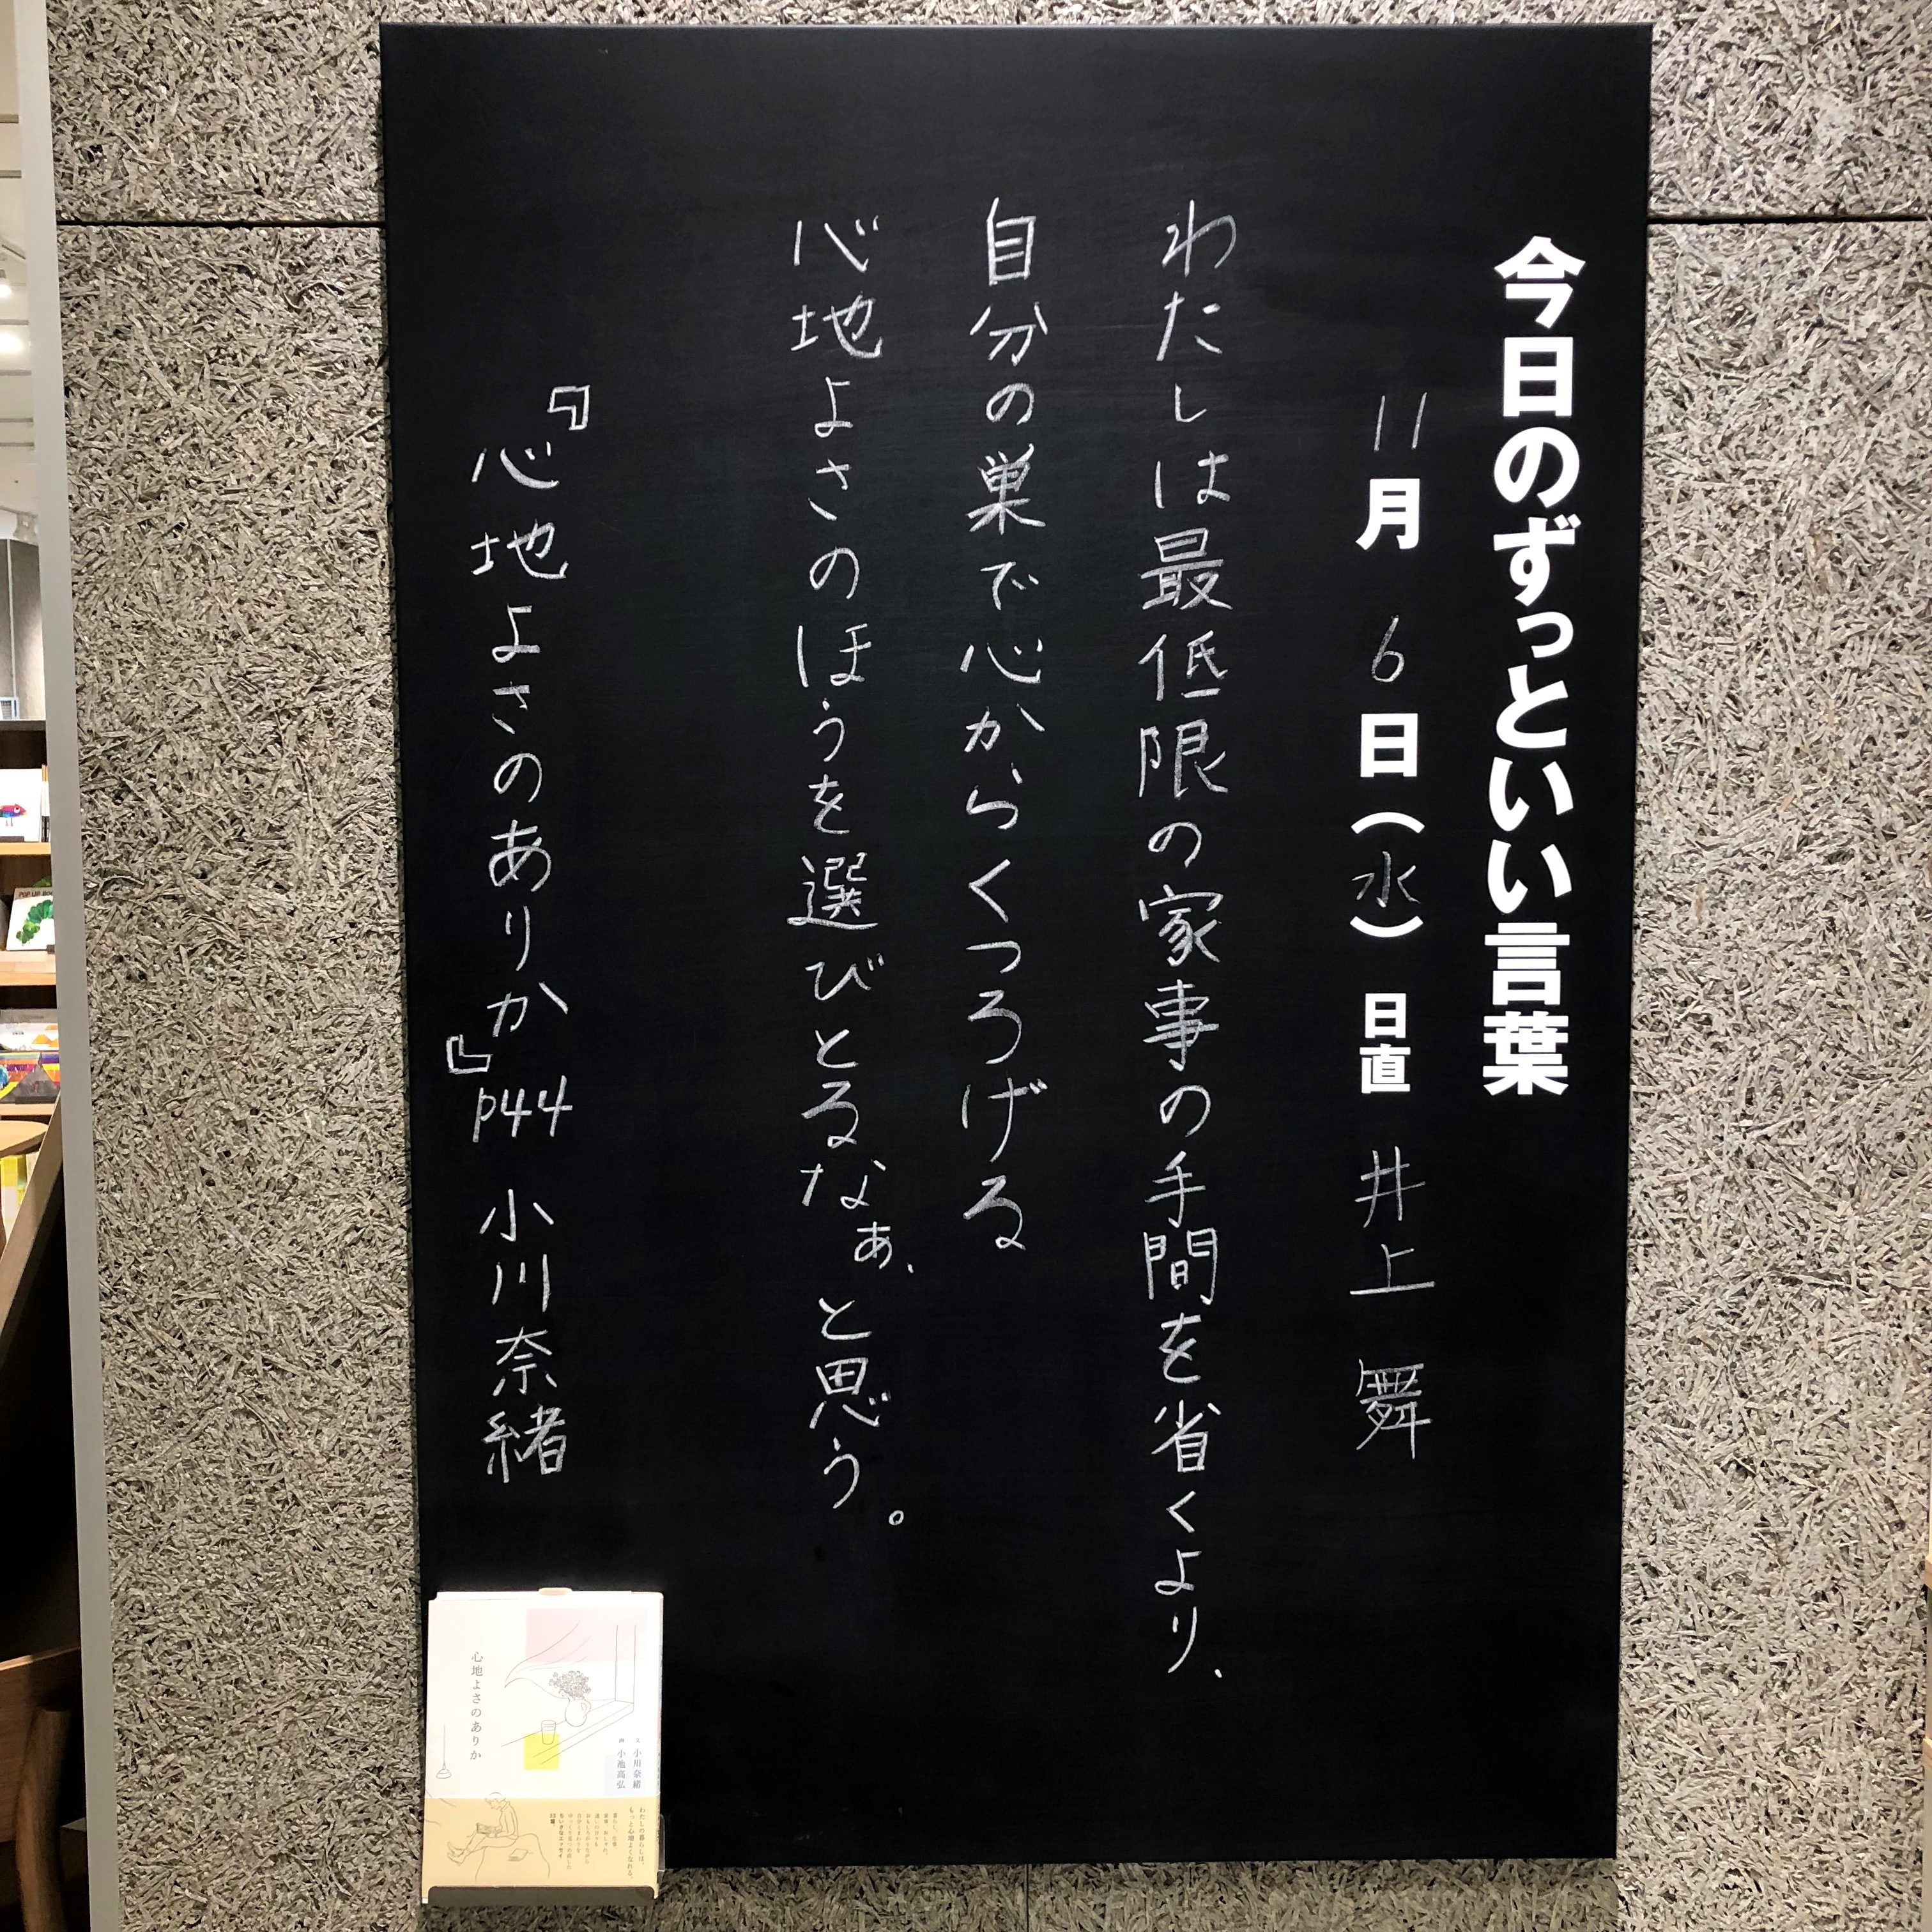 今日のずっといい言葉
11月 6日(水) 日直 井上 舞
わたしは最低限の家事の手間を省くより、
自分の巣で心からくつろげる
心地よさのほうを選びとるなぁ、と思う。
『心地よさのありか』P44 小川奈緒
心地よさのありか
文 小川奈緒
画 小池高弘
わたしの暮らしは、
もっと心地よくなれる。